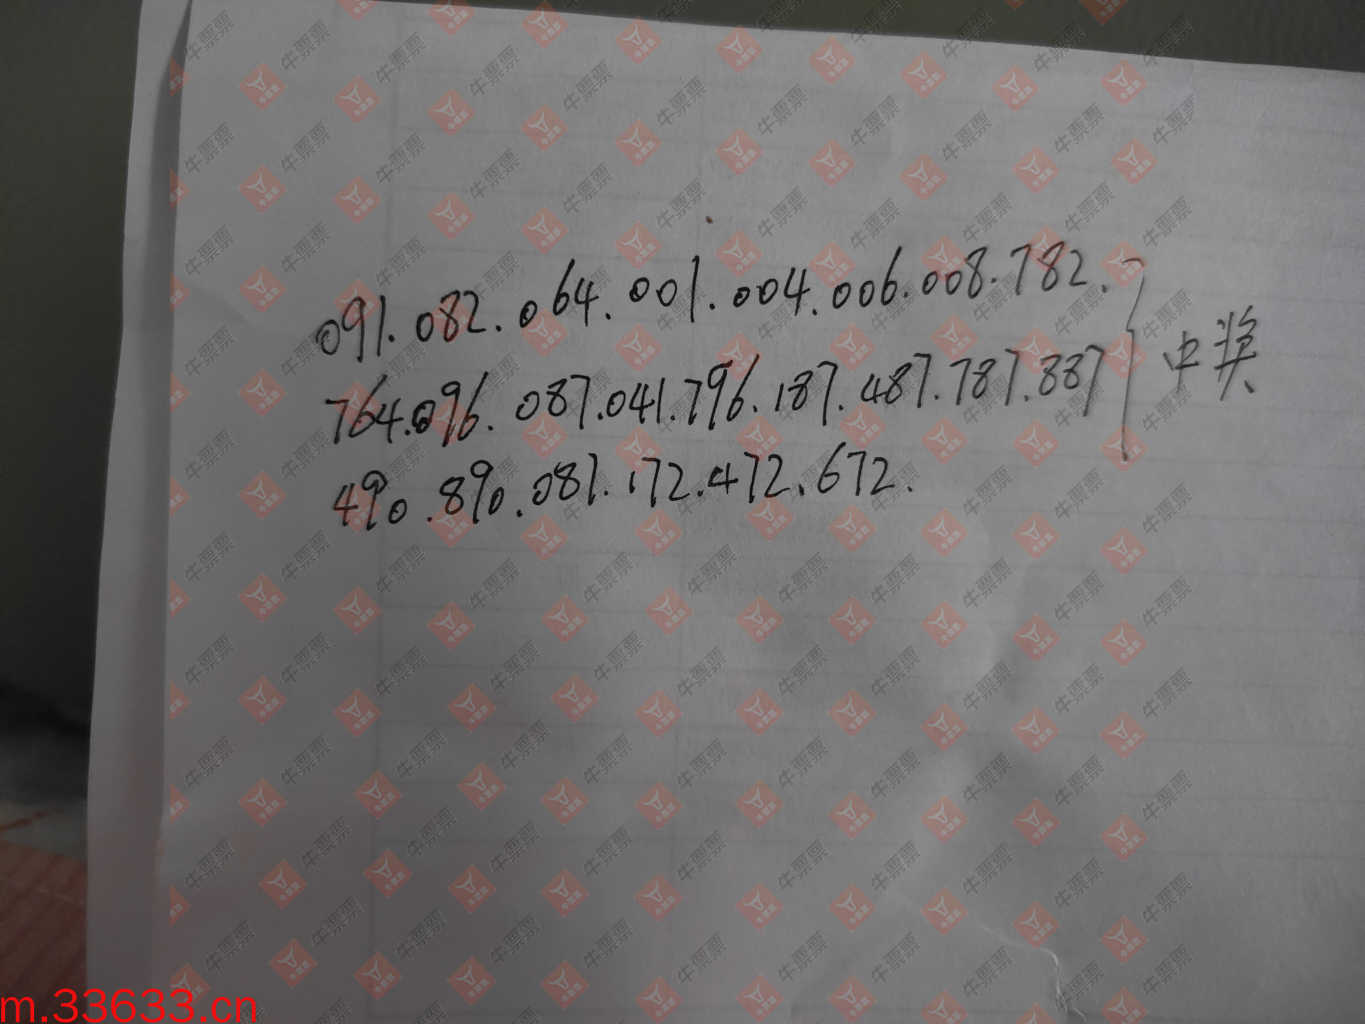 091.082.064.001.004.006.008.782.
764.096.087.041.796.187.487.787.887 } 中奖
490.890.081.172.472.672.
牛票票
m.33633.cn